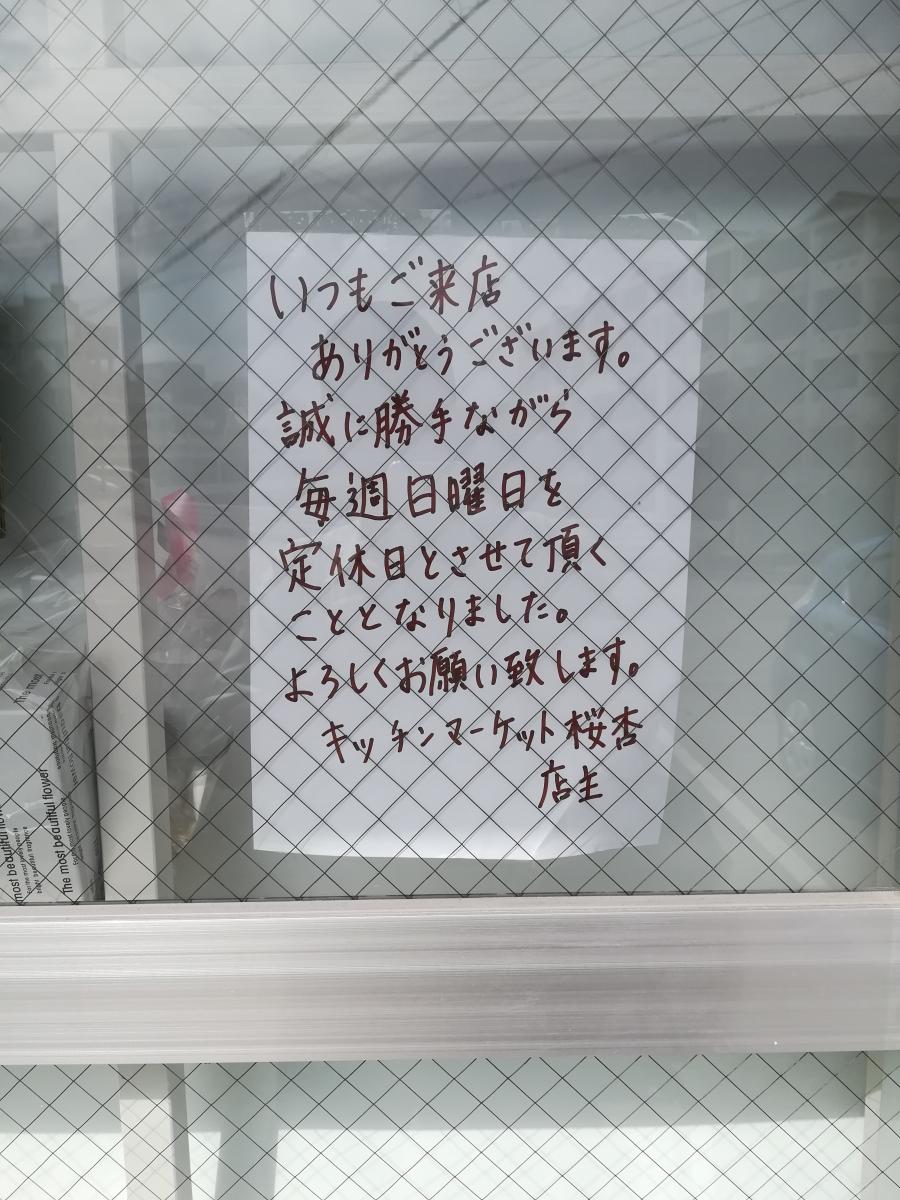 いつもご来店
ありがとうございます。
誠に勝手ながら
毎週日曜日を
定休日とさせて頂く
こととなりました。
よろしくお願い致します。
キッチンマーケット桜杏
店主
The most
The most beautiful flower
most beautiful flower